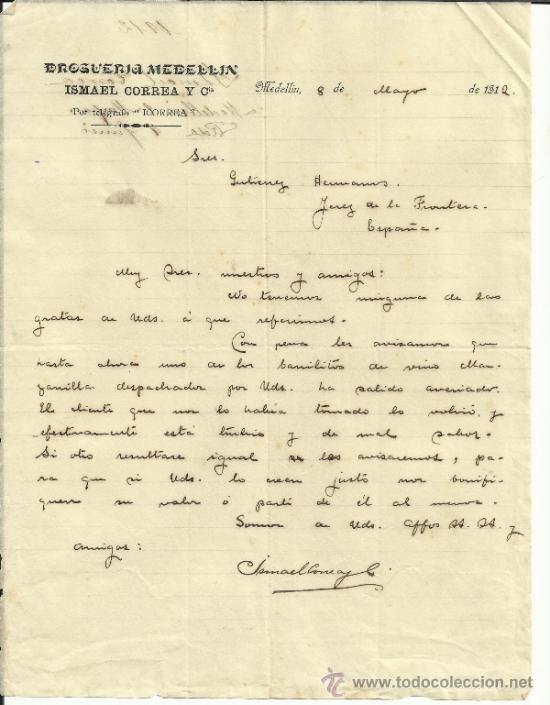 DROGUERIA MEDELLIN
ISMAEL CORREA Y Cia
Por telégrafo "ICORREA"
Medellin, 8 de Mayo de 1912.
Sres.
Gutierrez Hermanos.
Jerez de la Frontera.
España.
Muy Sres. nuestros y amigos:
No tenemos ninguna de las
gratas de Uds. á que referirnos.
Con pena les avisamos que
hasta ahora uno de los barrilitos de vino Man-
zanilla despachados por Uds. ha salido averiado.
El cliente que nos lo había tomado lo volvió y
efectivamente está turbio y de mal sabor.
Si otro resultare igual les avisaremos, pa-
ra que si Uds. lo creen justo nos bonifi-
quen su valor ó parte de él al menos.
Somos de Uds. Affos SS. SS. y
amigos:
Ismael Correa y C.
www.todocoleccion.net